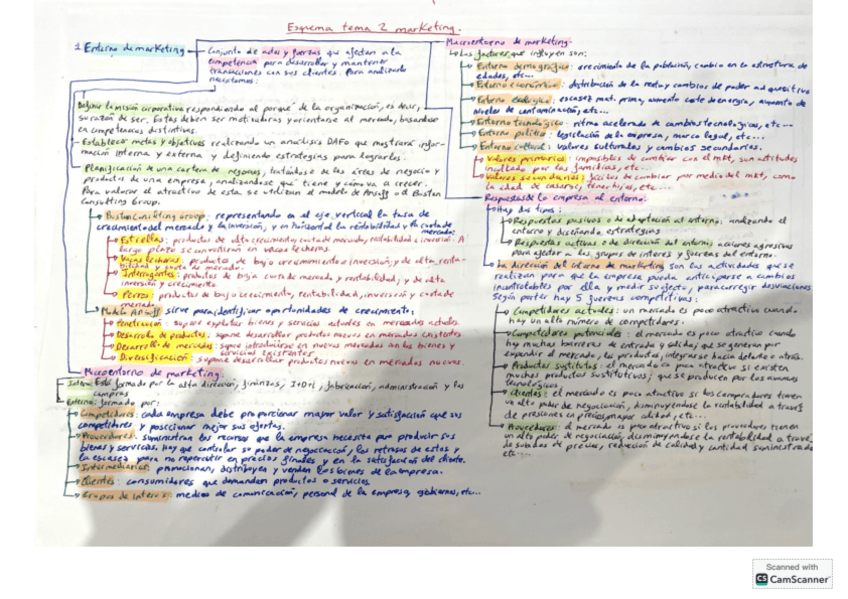 Esquema tema 2 marketing.
1. Entorno de marketing
Conjunto de actos y fuerzas que afectan a la
competencia para desarrollar y mantener
transacciones con sus clientes. Para analizarlo
necesitamos:
Definir la misión corporativa respondiendo al porqué de la organización, es decir,
su razón de ser. Estas deben ser motivadoras y orientarse al mercado, basandose
en competencias distintivas.
Establecer metas y objetivos realizando un analisis DAFO que mostrará infor-
mación interna y externa y definiendo estrategias para lograrlos.
Planificación de una cartera de negocios, tratándose de las áreas de negocio y
productos de una empresa, analizandose que tiene y cómo va a crecer.
Para valorar el atractivo de esta se utilizan el modelo de Ansoff o el Boston
Consulting Group.
Boston Consulting Group: representando en el eje vertical la tasa de
crecimiento del mercado y la inversión, y en horizontal la rentabilidad y la cuota de
mercado:
Estrellas: productos de alto crecimiento, cuota de mercado, rentabilidad e inversión. A
largo plazo se convertirán en vacas lecheras.
Vacas lecheras: productos de bajo crecimiento e inversión; y de alta renta-
bilidad y cuota de mercado.
Interrogantes: productos de baja cuota de mercado y rentabilidad; y de alta
inversión y crecimiento.
Perros: productos de bajo crecimiento, rentabilidad, inversión y cuota de
mercado
Modelo Ansoff sirve para identificar oportunidades de crecimiento:
Penetración: supone explotar bienes y servicios actuales en mercados actuales.
Desarrollo de productos: supone desarrollar productos nuevos en mercados existentes
Desarrollo de mercados: supone introducirse en nuevos mercados con los bienes y
servicios existentes
Diversificación: supone desarrollar productos nuevos en mercados nuevos.
Microentorno de marketing:
Interno: Está formado por la alta dirección, finanzas, I+D+i, fabricación, administración y las
compras
Externo: formado por:
Competidores: cada empresa debe proporcionar mayor valor y satisfacción que sus
competidores y posicionar mejor sus ofertas.
Proveedores: suministran los recursos que la empresa necesita para producir sus
bienes y servicios. Hay que controlar su poder de negociación, los retrasos de estos y
la escasez para no repercutir en precios finales y en la satisfacción del cliente.
Intermediarios: promocionan, distribuyen y venden los bienes de la empresa.
Clientes: consumidores que demandan productos o servicios
Grupos de interés: medios de comunicación, personal de la empresa, gobiernos, etc...
Macroentorno de marketing:
Los factores que influyen son:
Entorno demográfico: crecimiento de la población, cambio en la estructura de
edades, etc...
Entorno económico: distribución de la renta y cambios de poder adquisitivo
Entorno ecológico: escasez mat. prima, aumento coste de energía, aumento de
niveles de contaminación, etc...
Entorno tecnológico: ritmo acelerado de cambios tecnológicos, etc...
Entorno político: legislación de la empresa, marco legal, etc...
Entorno cultural: valores culturales y cambios secundarios.
Valores primarios: imposibles de cambiar con el mkt, son actitudes
por las familias, etc...
Valores secundarios: fáciles de cambiar por medio del mkt, como
la edad de casarse, tener hijos, etc...
Respuestas de la empresa al entorno:
Hay dos tipos:
Respuestas pasivas o de adaptación al entorno: analizando el
entorno y diseñando estrategias
Respuestas activas o de dirección del entorno: acciones agresivas
para afectar a los grupos de interés y fuerzas del entorno.
La dirección del entorno de marketing son las actividades que se
realizan para que la empresa pueda anticiparse a cambios
incontrolables por ella y medir su efecto, para corregir desviaciones
Según porter hay 5 fuerzas competitivas:
Competidores actuales: un mercado es poco atractivo cuando
hay un alto número de competidores.
Competidores potenciales: el mercado es poco atractivo cuando
hay muchas barreras de entrada y salida; que se generan por
expandir el mercado, los productos, integrarse hacia delante o atrás.
Productos sustitutos: el mercado es poco atractivo si existen
muchos productos sustitutivos; que se producen por los avances
tecnológicos
Clientes: el mercado es poco atractivo si los compradores tienen
un alto poder de negociación, disminuyendose la rentabilidad a través
de presiones en precios, mayor calidad, etc...
Proveedores: el mercado es poco atractivo si los proveedores tienen
un alto poder de negociación, disminuyendose la rentabilidad a través
de subidas de precios, reducción de calidad y cantidad suministrada
etc...
Scanned with
CS CamScanner